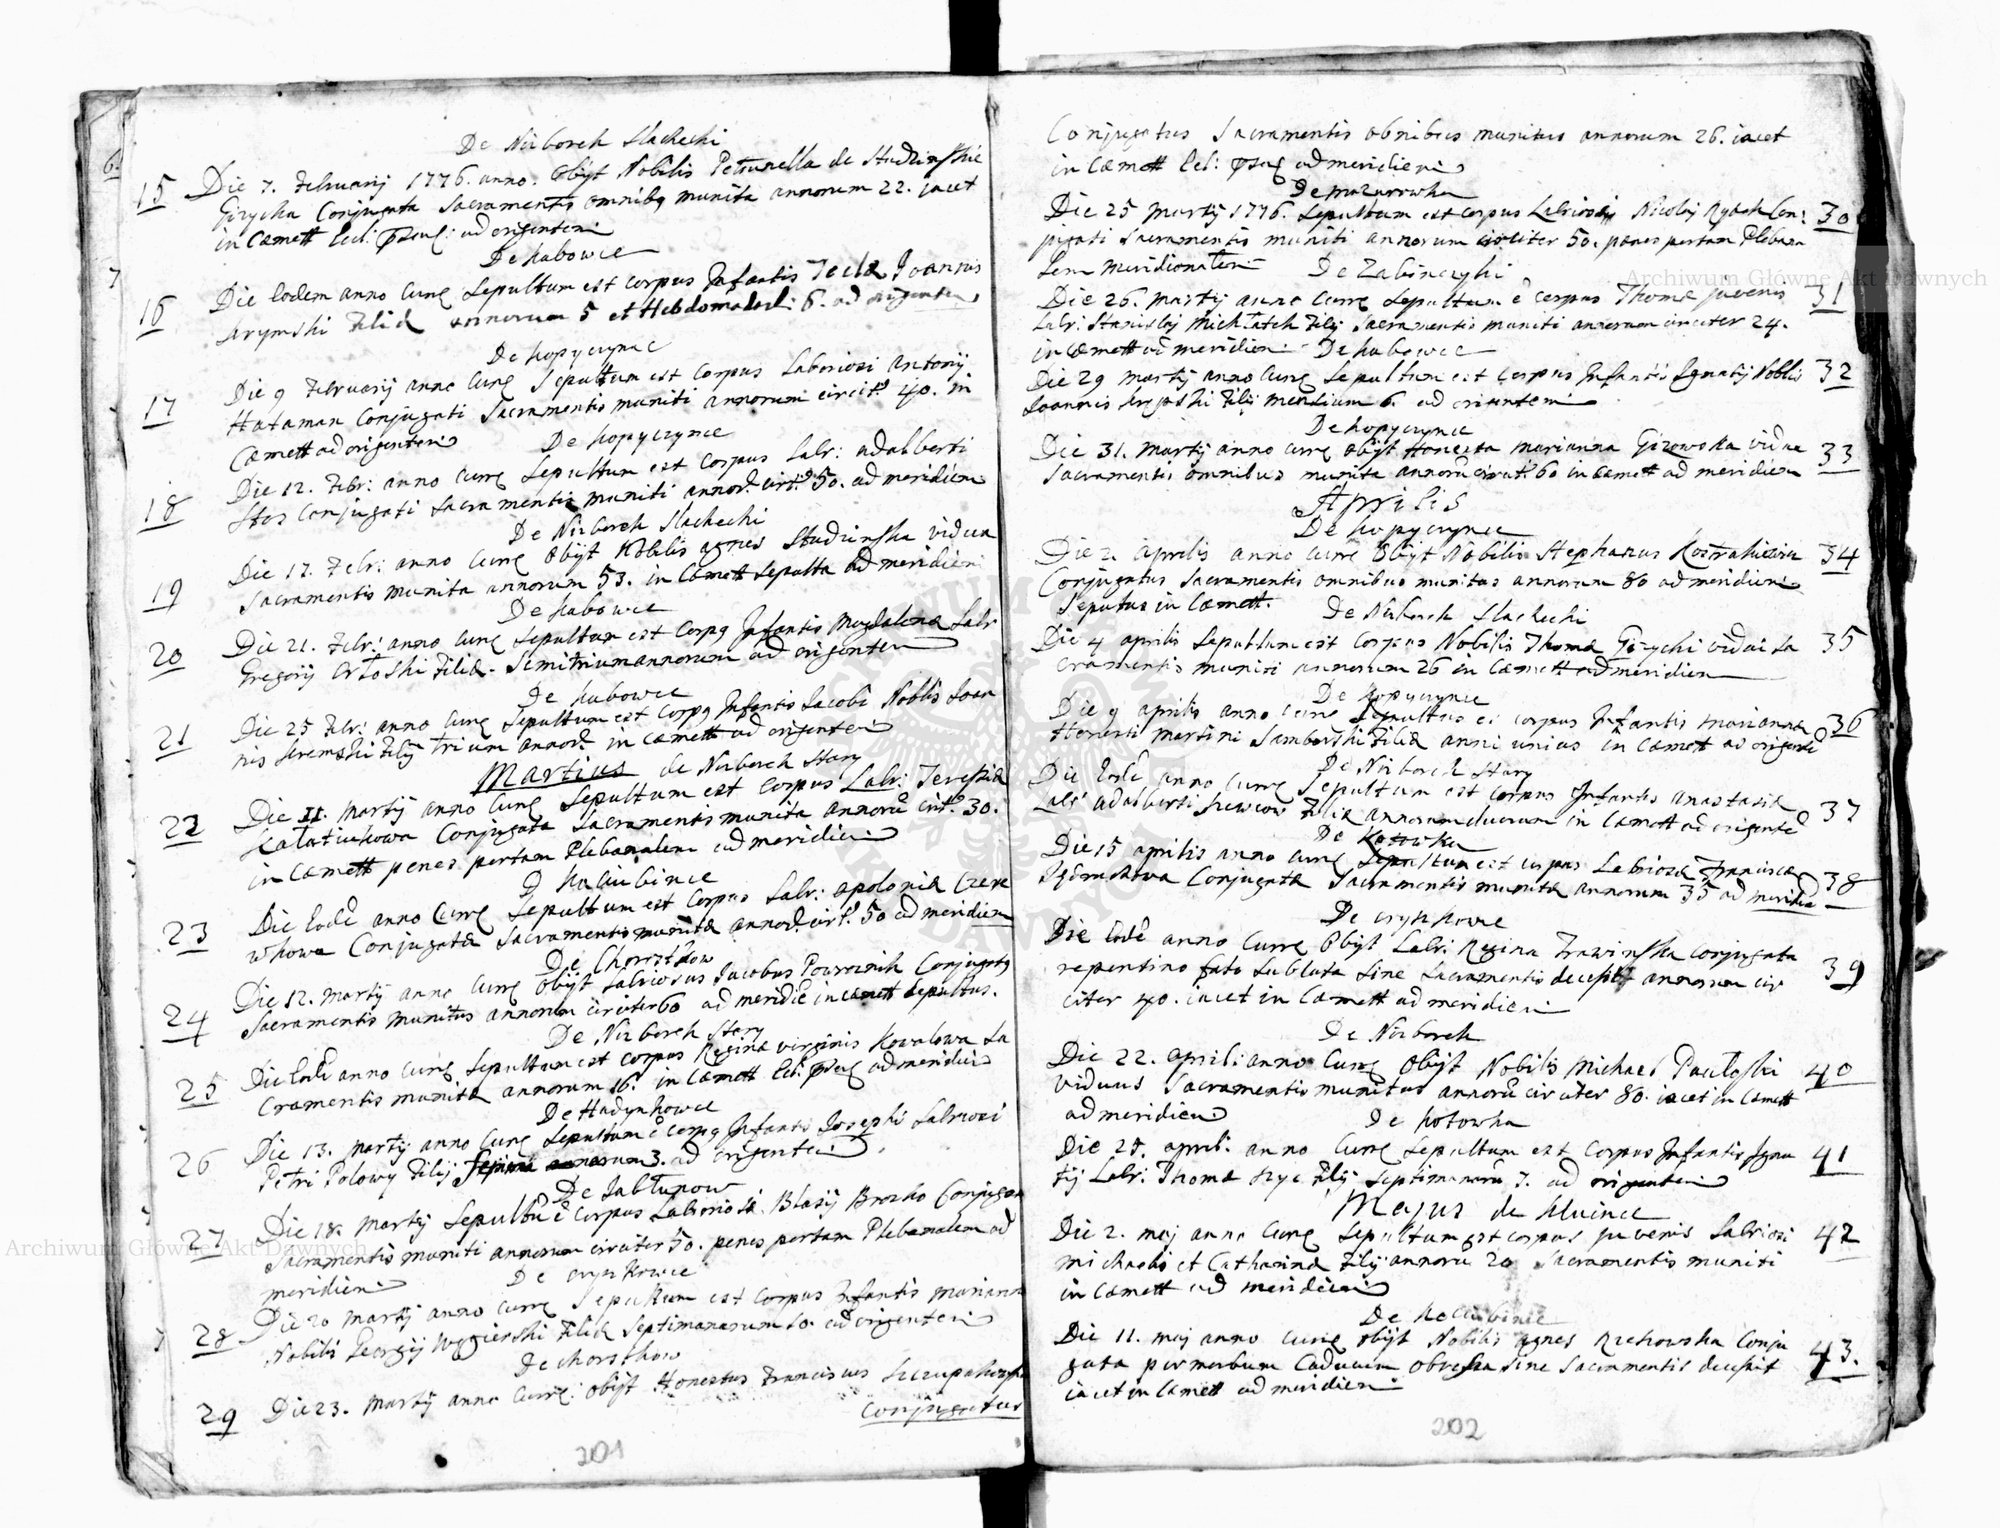 De Nizborch Slachecki
15 Die 7. Februarij 1776. anno. Obijt Nobilis Petrunella de Studzinskie
Gizycka Conjugata Sacramentis omnibq munita annorum 22. iacet
in Cæmett Eccl: ad origentem
De habowce
16 Die Eodem anno Curre Sepultum est corpus Infantis Teclæ Joannis
Krymski Filiæ annorum 5 et Hebdomadarū 6. ad origentem
De Kopyczynce
17 Die 9 Februarij anno Curre Sepultum est Corpus Laboriosi Antonij
Hataman Conjugati Sacramentis muniti annorum circitr 40. in
Cæmett ad origentem De Kopyczynce
18 Die 12. Febr: anno Curre Sepultum est Corpus Labr: adalberti
Stos Conjugati Sacramentis muniti annor circitr 50. ad meridiem
De Nizborch Slachecki
19 Die 17. Febr: anno Curre Obijt Nobilis agnes Studzinska vidua
Sacramentis munita annorum 53. in Cæmett Sepulta ad meridiem
De habowce
20 Die 21. Febr: anno Curre Sepultum est Corpq Infantis Magdalenæ Labr
Gregorij Filiæ. Semitrium annorum ad origentem
De habowce
21 Die 25 Febr: anno Curre Sepultum est Corpq Infantis Jacobi Noblis Joan
nis Kremski Filij Trium annor in Cæmett ad origentem
Martius de Nizborch Stary
22 Die 11. Martij anno Curre Sepultum est Corpus Labr: Teressiæ
Conjugata Sacramentis munita annorū circitr 30.
in Cæmett penes portam Plebanalem ad meridiem
23 Die Eodē anno Curre Sepultum est Corpus Labr: apoloniæ Czere
whowa Conjugatæ Sacramentis munitæ annor circitr 50 ad meridiem
De Chorostkow
24 Die 12. Martij anno Curre Obijt Labriosus Jacobus Powroznik Conjugatq
Sacramentis munitus annorum circiter 60 ad meridiē in Cæmett sepultus.
De Nizborch Stary
25 Die Eodē anno Curre Sepultum est corpus Reginæ virginis Kowalowa Sa
cramentis munitæ annorum 16. in Cæmett Eccl: ad meridiem
De Hadynkowce
26 Die 13. Martij anno Curre Sepultum ē Corpq Infantis Josephi Labriosi
Petri Polowy Filij annorum 3. ad origentem
De Jabłunow
27 Die 18. Martij Sepultū ē Corpus Laboriosi Blasij Brozko Conjugati
Sacramentis muniti annorum circiter 50. penes portam Plebanalem ad
meridiem De
28 Die 20 Martij anno Curre Sepultum est Corpus Infantis Mariannæ
Nobilis Georgij Węgierski Filiæ Septimanarum 10. ad origentem
De Chorostkow
29 Die 23. Martij anno Curre: obijt Honestus Franciscus
Conjugatus
201
Conjugatus Sacramentis obnibus munitus annorum 26. iacet
in Cæmett Eccl: ad meridiem
De Mazurowka
Die 25 Martij 1776. Sepultum est Corpus Labriosi Nicolaj Rybak Con: 30
jugati Sacramentis muniti annorum circiter 50. penes portam Plebana
lem Meridionalem De Zabinczyki
Die 26. Martij anno Curre Sepultum ē Corpus Thomæ juvenis 31
Labr: Stanislaj Michlatek Filij Sacramentis muniti annorum circiter 24.
in Cæmett ad meridiem De habowce
Die 29 Martij anno Curre Sepultum est Corpus Infantis Ignatij Noblis 32
Joannis Filij Mensium 6. ad orientem
De Kopyczynce
Die 31. Martij anno Curre obijt Honesta Marianna Gizowska vidua 33
Sacramentis omnibus munita annorū circit 60 in Cæmett ad meridiem
Aprilis
De Kopyczynce
Die 2. Aprilis anno Curre Obijt Nobilis Stephanus 34
Conjugatus Sacramentis omnibus munitus annorum 80 ad meridiem
Seputus in Cæmett. De Nizborch Slachecki
Die 4 aprilis Sepultum est Corpus Nobilis Thomæ Gizycki vidui Sa 35
cramentis muniti annorum 26 in Cæmett ad meridiem
De Kopyczynce
Die 9 aprilis anno Curre Sepultus ē corpus Infantis Mariannæ 36
Honesti Martini Samborski Filiæ anni unius in Cæmett ad origentē
De Nizborch Stary
Die Eodē anno Curre Sepultum est Corpus Infantis anastasiæ 37
Labr adalberti Filiæ annorum duorum in Cæmett ad origentē
De Kotowka
Die 15 aprilis anno Curre Sepultum est Corpus Labriosæ Franciscæ 38
Conjugatæ Sacramentis munitæ annorum 35 ad meridiē
De
Die Eodē anno Curre Obijt Labr: Regina Trawinska Conjugata
repentino fato Sublata Sine Sacramentis decessit annorum cir 39
citer 40. iacet in Cæmett ad meridiem
De Nizborch
Die 22. aprili anno Curre Obijt Nobilis Michael Pauloski 40
viduus Sacramentis munitus annorū circiter 80. iacet in Cæmett
ad meridiem De Kotowka
Die 25. april. anno Curre Sepultum est Corpus Infantis Igna 41
tij Labr. Thomæ Filij Septimanarū 7. ad origentem
Majus de
Die 2. maj anno Curre Sepultum est corpus juvenis Labriosi 42
Michaelis et Catharinæ Filij annorū 20 Sacramentis muniti
in Cæmett ad meridiem
Die 11. maj anno Curre obijt Nobilis agnes Rzchowska Conju 43.
gata per morbum Caducum obressa sine Sacramentis decessit
iacet in Cæmett ad meridiem
202
Archiwum Główne Akt Dawnych
Archiwum Główne Akt Dawnych